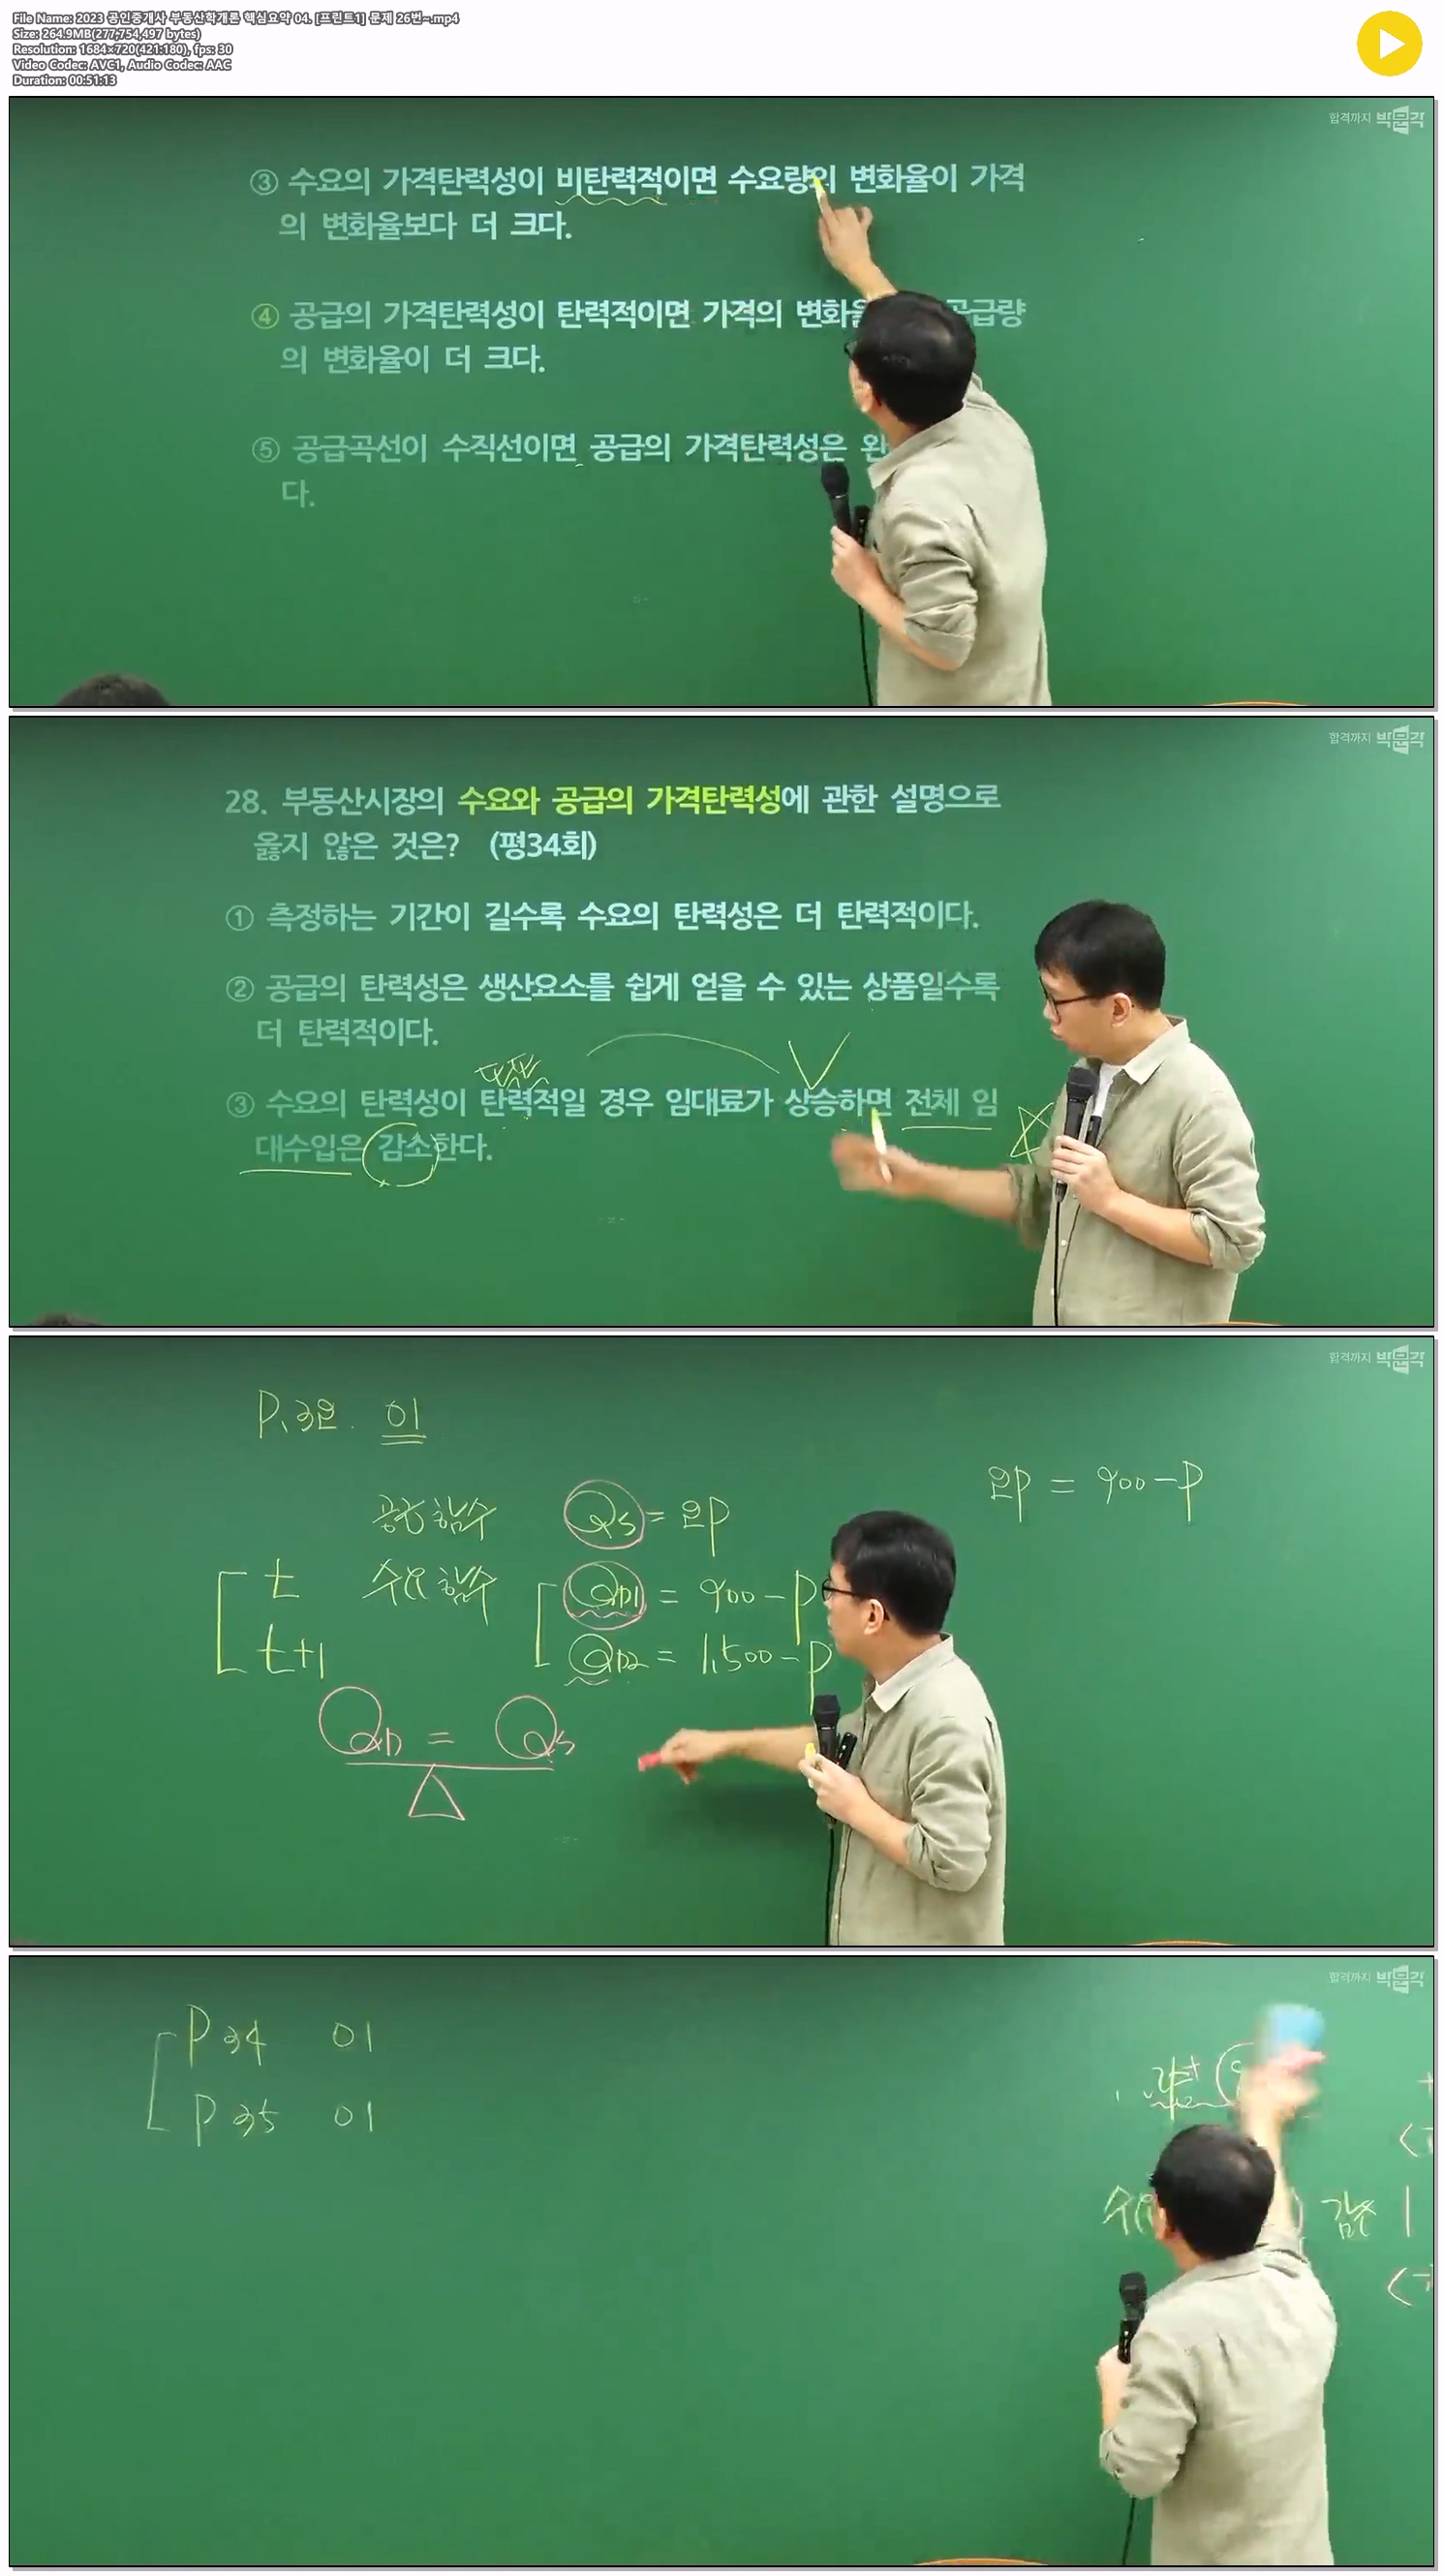 File Name: 2023 공인중개사 부동산학개론 핵심요약 04. [프린트1] 문제 26번~.mp4
Size: 264.9MB(277,754,497 bytes)
Resolution: 1684×720(421:180), fps: 30
Video Codec: AVC1, Audio Codec: AAC
Duration: 00:51:13
합격까지 박문각
③ 수요의 가격탄력성이 비탄력적이면 수요량의 변화율이 가격
의 변화율보다 더 크다.
④ 공급의 가격탄력성이 탄력적이면 가격의 변화율 공급량
의 변화율이 더 크다.
⑤ 공급곡선이 수직선이면 공급의 가격탄력성은 완
다.
합격까지 박문각
28. 부동산시장의 수요와 공급의 가격탄력성에 관한 설명으로
옳지 않은 것은? (평34회)
① 측정하는 기간이 길수록 수요의 탄력성은 더 탄력적이다.
② 공급의 탄력성은 생산요소를 쉽게 얻을 수 있는 상품일수록
더 탄력적이다.
③ 수요의 탄력성이 탄력적일 경우 임대료가 상승하면 전체 임
대수입은 감소한다.
합격까지 박문각
P.32. 01
2P = 900-P
공급함수 Qs = 2P
t 수요함수 QD1 = 900-P
t+1 QD2 = 1,500-P
QD = Qs
합격까지 박문각
P34 01
P35 01
감소